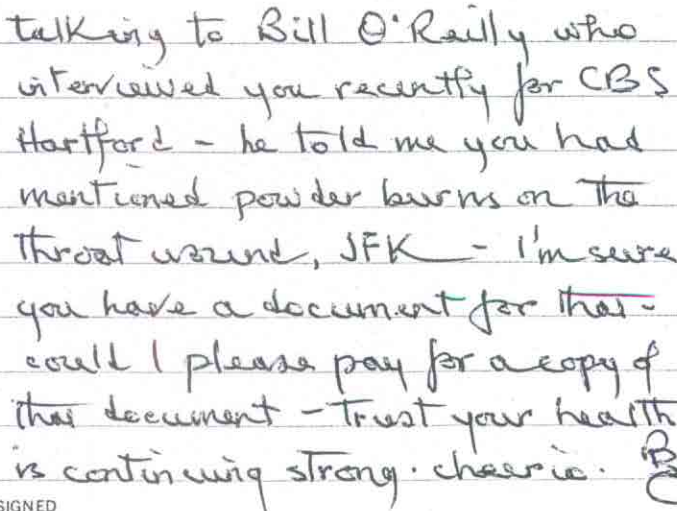 talking to Bill O'Reilly who
interviewed you recently for CBS
Hartford - he told me you had
mentioned powder burns on the
throat wound, JFK - I'm sure
you have a document for that -
could I please pay for a copy of
that document - trust your health
is continuing strong. cheerio.
SIGNED